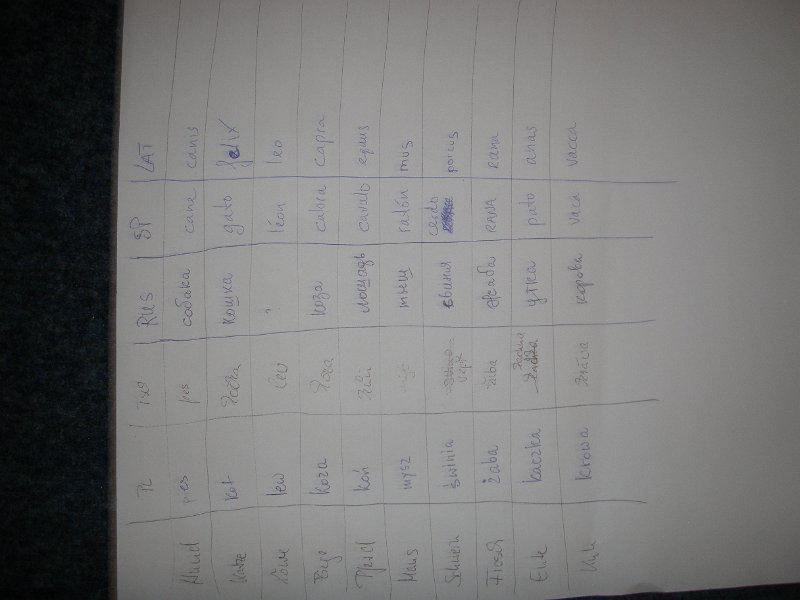 PL RUS SP LAT
Hund pies pes собака cane canis
Katze kot kočka кошка gato felix
Löwe lew lev ? léon leo
koza koza коза cabra capra
Pferd koń лошадь cavalo equus
Maus mysz мыщ ratón mus
Schwein świnia vepř свиня cerdo porcus
Frosch żaba žaba жаба RANA rana
Ente kaczka утка pato anas
Kuh krowa корова vaca vacca